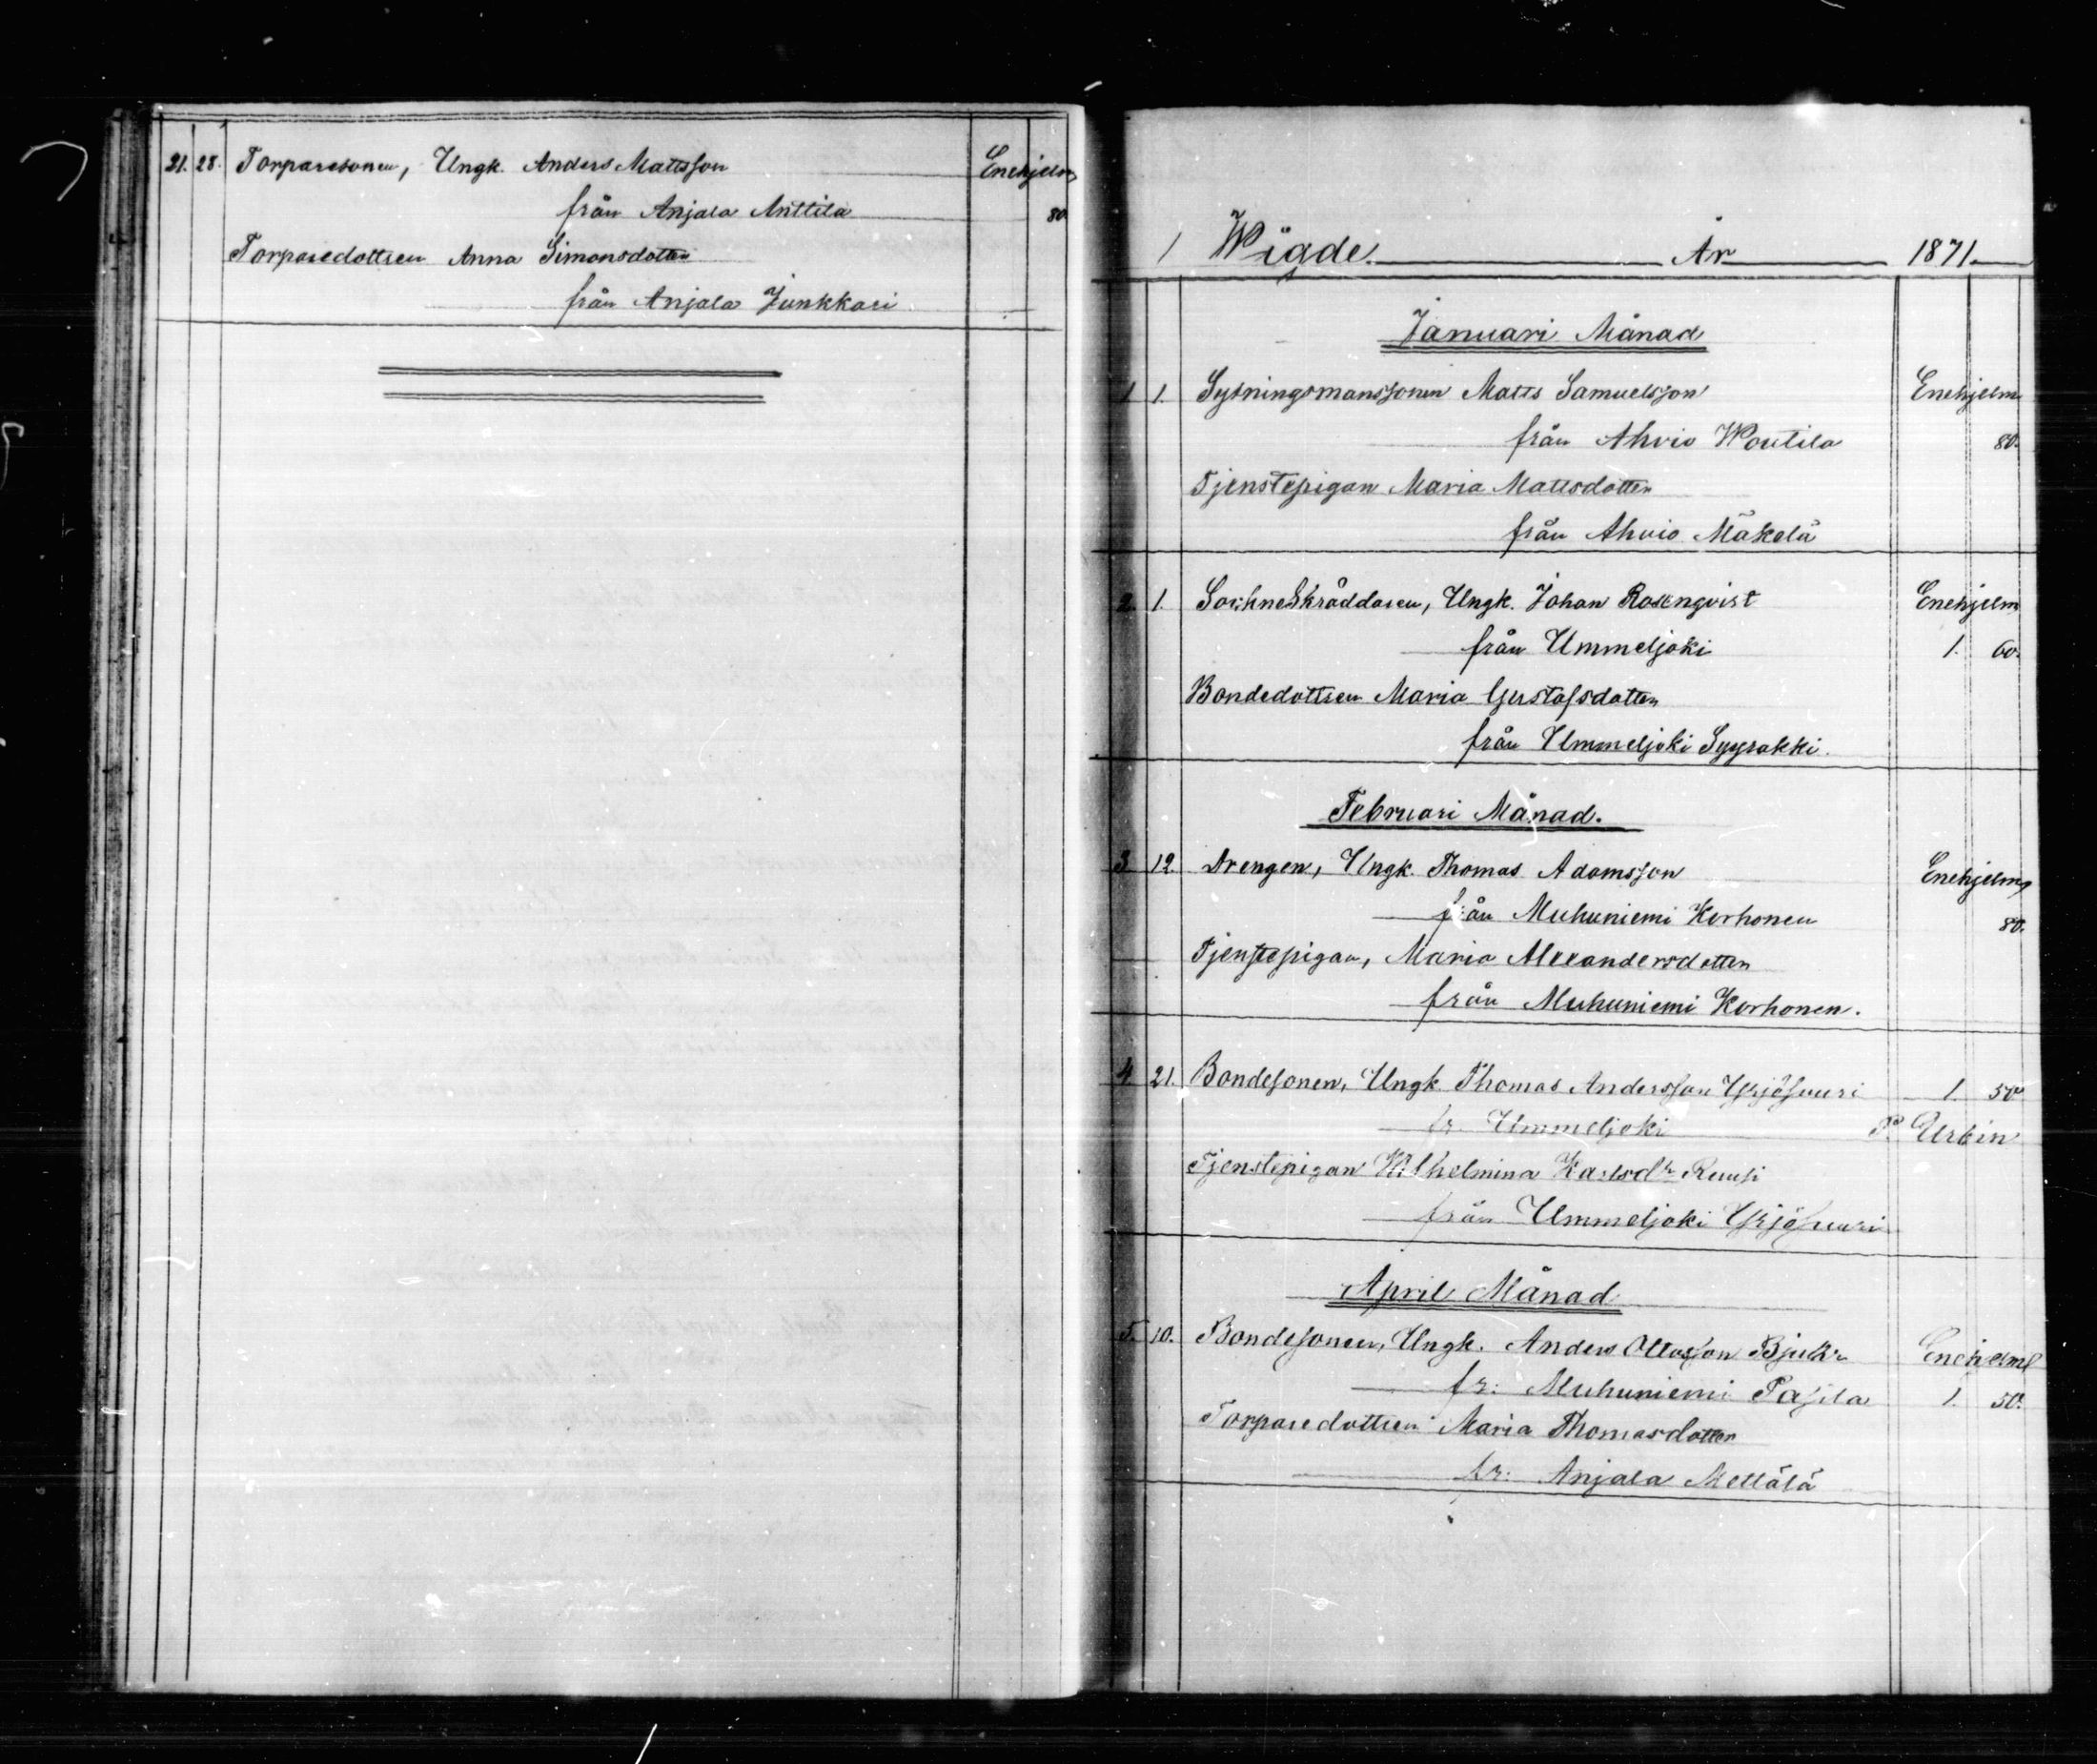 21. 28. Torparesonen, Ungk. Anders Mattsson Enehjelm
från Anjala Anttila 80
Torparedottren Anna Simonsdotter
från Anjala Junkkari
1 Wigde År 1871.
Januari Månad
1 1. Sytningsmanssonen Matts Samuelsson Enehjelm
från Ahvio Woutila 80.
Tjenstepigan Maria Mattsdotter
från Ahvio Mäkelä
2. 1. Sockneskräddaren, Ungk. Johan Rosenqvist Enehjelm
från Ummeljoki 1. 60.
Bondedottren Maria Gustafsdotter
från Ummeljoki Syyrakki.
Februari Månad.
3 12. Drengen, Ungk. Thomas Adamsson Enehjelm
från Muhuniemi Korhonen 80.
Tjenstepigan, Maria Alexandersdotter
från Muhuniemi Korhonen.
4 21. Bondesonen, Ungk. Thomas Andersson Yrjösuuri 1. 50
fr. Ummeljoki P. Urbin
Tjenstepigan Wilhelmina Karlsdr Ruusi
från Ummeljoki Yrjösuuri
April Månad
5. 10. Bondesonen, Ungk. Anders Ottosson Enehjelm
fr: Muhuniemi Pasila 1. 50.
Torparedottren Maria Thomasdotter
fr: Anjala Mellälä